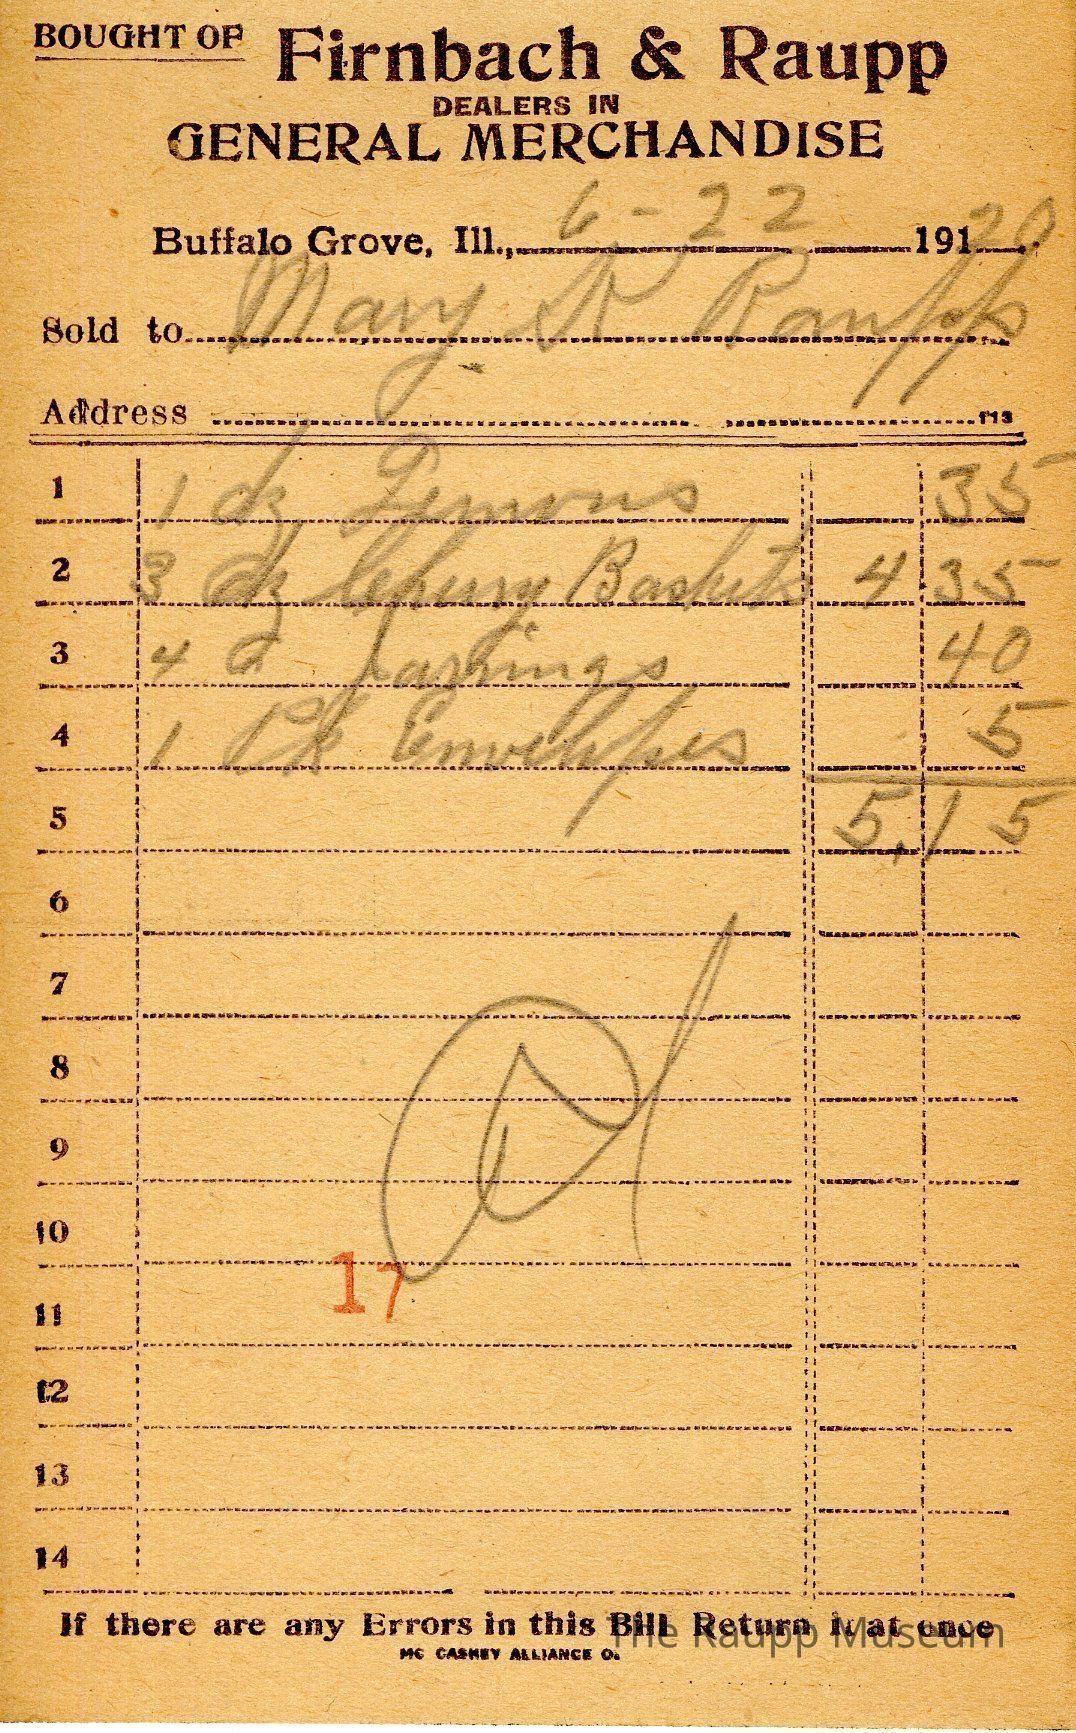 BOUGHT OF Firnbach & Raupp
DEALERS IN
GENERAL MERCHANDISE
Buffalo Grove, Ill., 6-22 191 20
Sold to Mary K Raupp
Address
1 1 dz Lemons 35
2 3 dz Cherry Baskets 4 35
3 4 40
4 1 Pk Envelopes 5
5 5.15
6
7
8
9
10
11
17
12
13
14
If there are any Errors in this Bill Return it at once
The Raupp Museum
MC CASKEY ALLIANCE O.